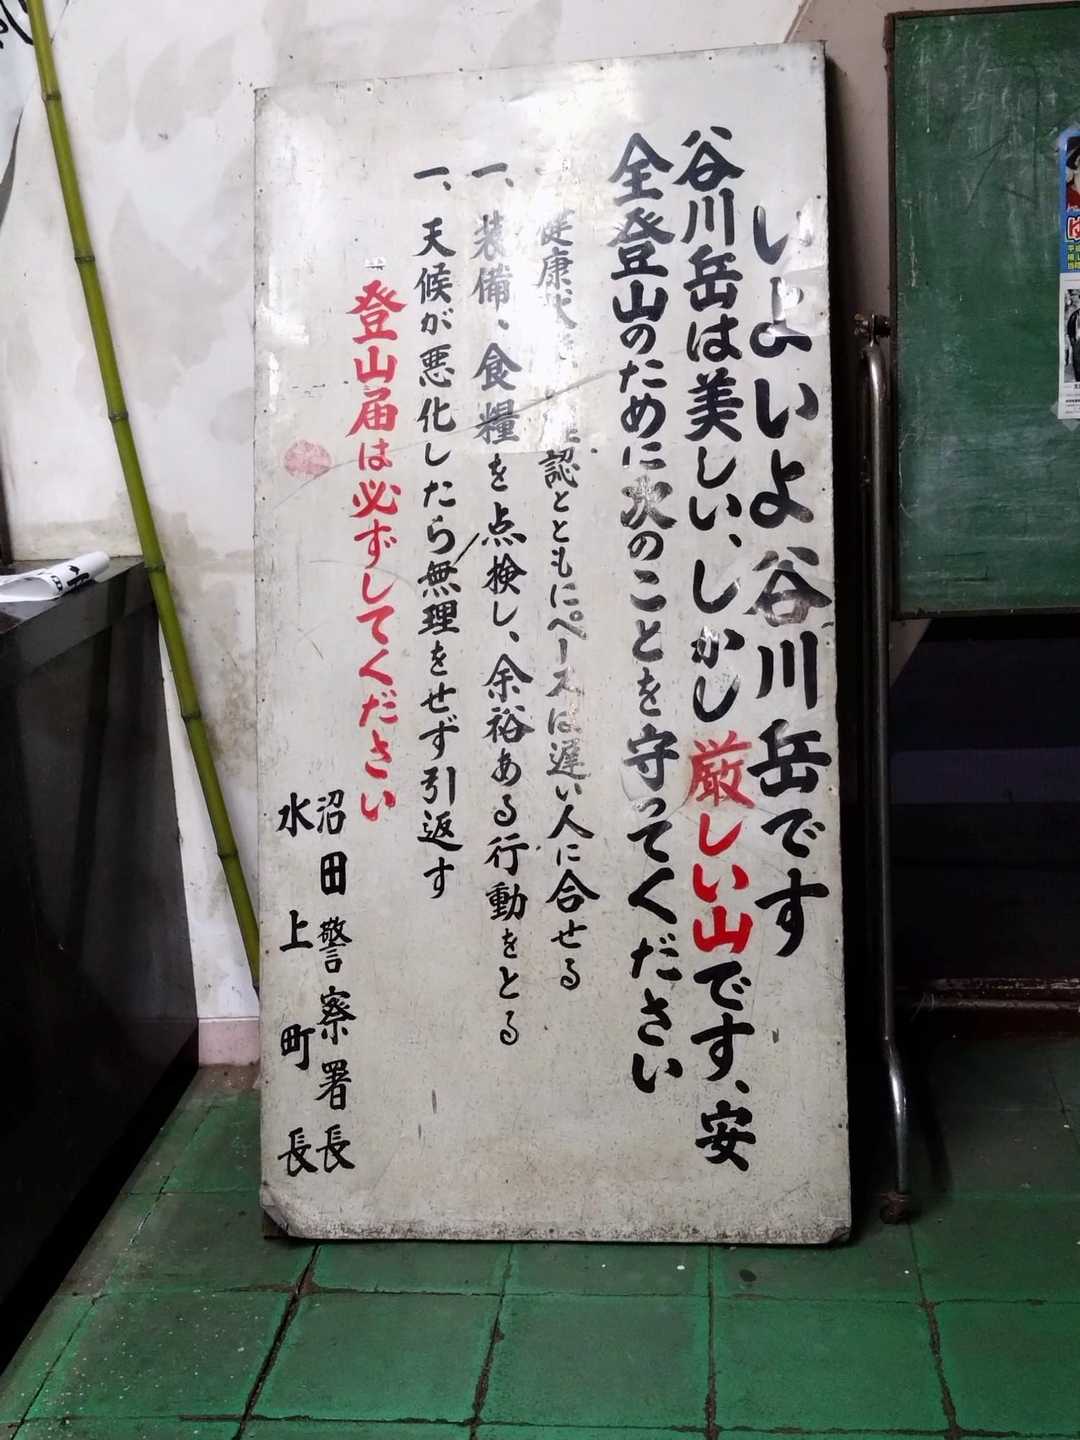 いよいよ谷川岳です
谷川岳は美しい、しかし厳しい山です、安
全登山のために次のことを守ってください
健康状 認とともにペースは遅い人に合せる
一、装備、食糧を点検し、余裕ある行動をとる
一、天候が悪化したら無理をせず引返す
登山届は必ずしてください
沼田警察署長
水上町長